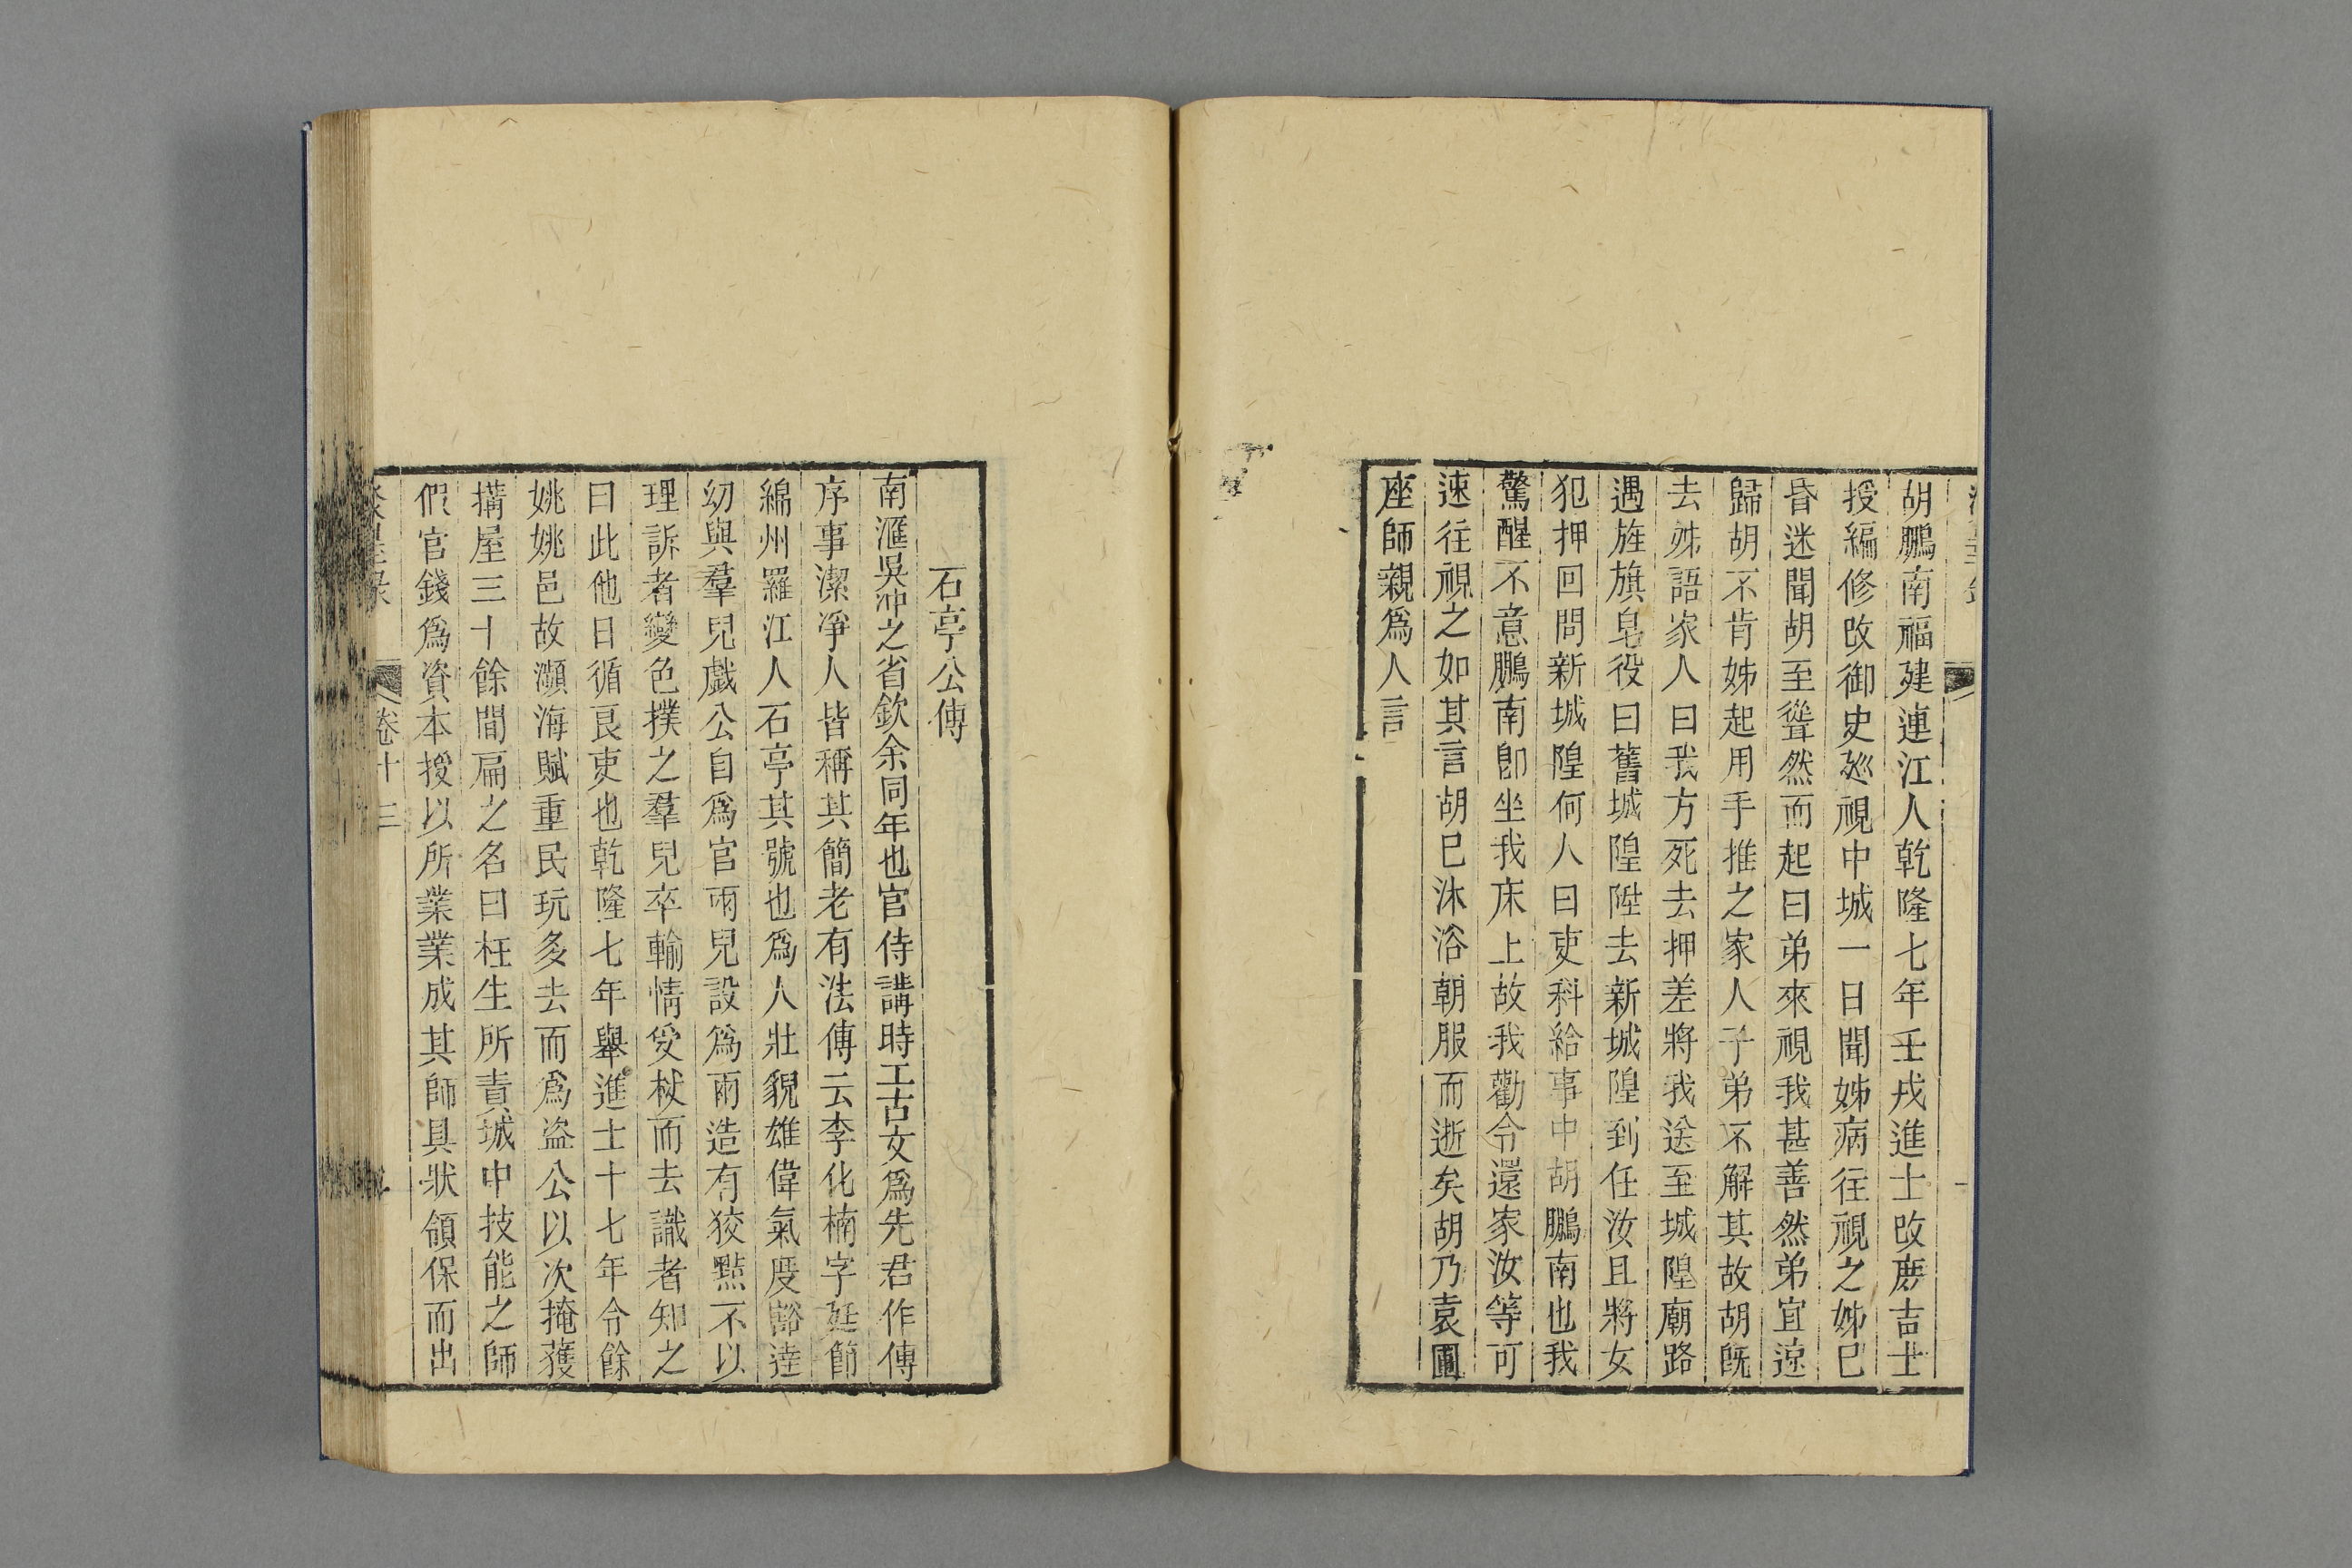 胡鵬南福建連江人乾隆七年壬戌進士改庶吉士
授編修改御史廵視中城一日聞姊病往視之姊已
昏迷聞胡至聳然而起曰弟來視我甚善然弟宜速
歸胡不肯姊起用手推之家人子弟不解其故胡旣
去姊語家人曰我方死去押差將我送至城隍廟路
遇旌旗皂役曰舊城隍陞去新城隍到任汝且將女
犯押回問新城隍何人曰吏科給事中胡鵬南也我
驚醒不意鵬南卽坐我床上故我勸令還家汝等可
速往視之如其言胡已沐浴朝服而逝矣胡乃袁圃
座師親爲人言
石亭公傳
南滙吳冲之省欽余同年也官侍講時工古文爲先君作傳
序事潔凈人皆稱其簡老有法傳云李化楠字廷節
綿州羅江人石亭其號也爲人壯貌雄偉氣度豁達
幼與羣兒戯公自爲官兩兒設爲兩造有狡黠不以
理訴者變色撲之羣兒卒輸情受杖而去識者知之
曰此他日循良吏也乾隆七年舉進士十七年令餘
姚姚邑故瀕海賦重民玩多去而爲盜公以次掩獲
搆屋三十餘間扁之名曰枉生所責城中技能之師
假官錢爲資本授以所業業成其師具狀領保而出
卷十三